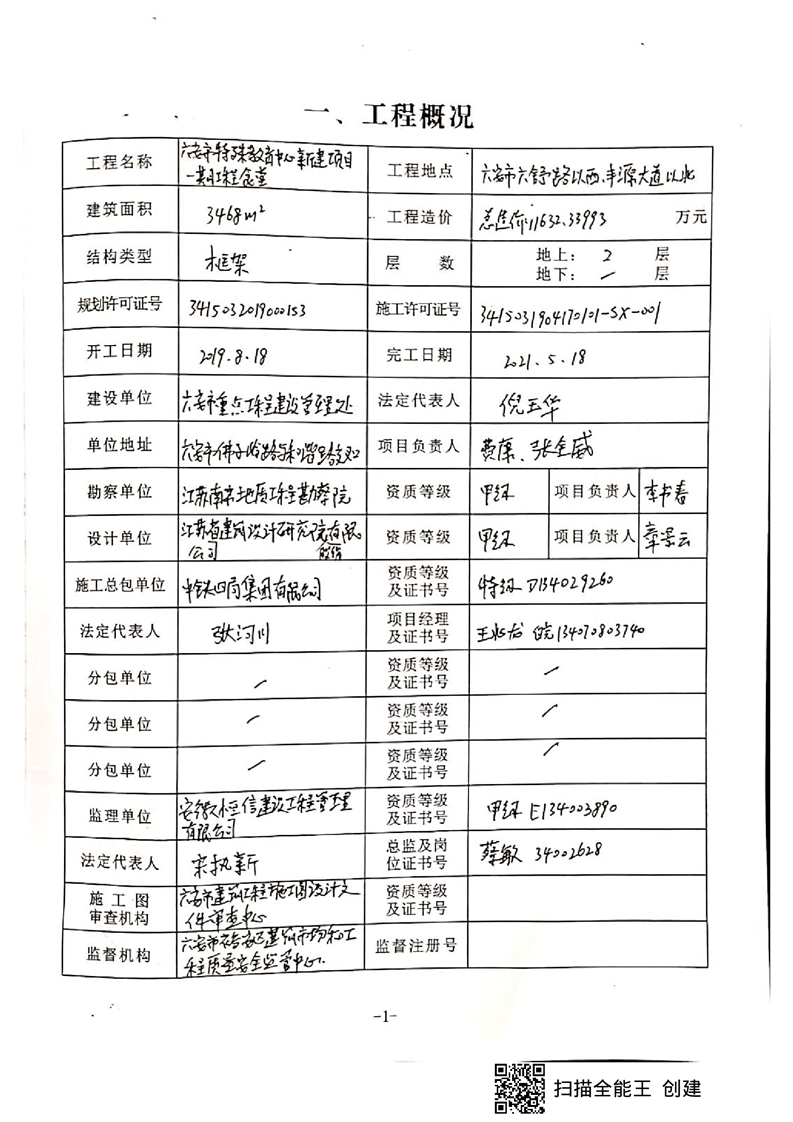 一、工程概况
工程名称 六安市特殊教育中心新建项目一期工程食堂 工程地点 六安市六舒路以西、丰源大道以北
建筑面积 3468m² 工程造价 总造价:11632.33993 万元
结构类型 框架 层数 地上: 2 层
地下: / 层
规划许可证号 3415032019000153 施工许可证号 3415031904170101-SX-001
开工日期 2019.8.18 完工日期 2021.5.18
建设单位 六安市重点工程建设管理处 法定代表人 倪玉华
单位地址 六安市佛子岭路与和 项目负责人 费康、张全威
勘察单位 江苏南京地质工程勘察院 资质等级 甲级 项目负责人 李书春
设计单位 江苏省建筑设计研究院股份有限公司 资质等级 甲级 项目负责人 章景云
施工总包单位 中铁四局集团有限公司 资质等级及证书号 特级 D134029260
法定代表人 张河川 项目经理及证书号 皖134070803740
分包单位 / 资质等级及证书号 /
分包单位 / 资质等级及证书号 /
分包单位 / 资质等级及证书号 /
监理单位 安徽恒信建设工程管理有限公司 资质等级及证书号 甲级 E134003890
法定代表人 宋执新 总监及岗位证书号 蔡敏 34002628
施工图审查机构 六安市建筑工程施工图设计文件审查中心 资质等级及证书号
监督机构 六安市裕安区建筑市场和工程质量安全监督中心. 监督注册号
-1-
扫描全能王 创建